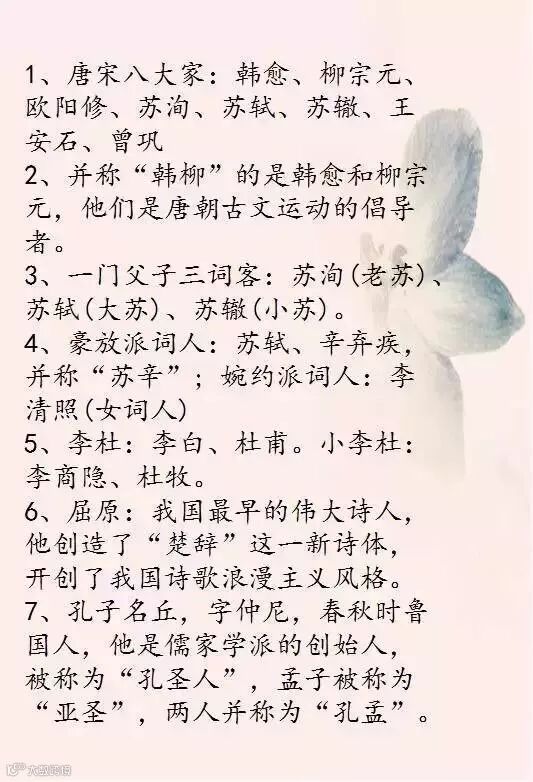 1、唐宋八大家：韩愈、柳宗元、
欧阳修、苏洵、苏轼、苏辙、王
安石、曾巩
2、并称“韩柳”的是韩愈和柳宗
元，他们是唐朝古文运动的倡导
者。
3、一门父子三词客：苏洵(老苏)、
苏轼(大苏)、苏辙(小苏)。
4、豪放派词人：苏轼、辛弃疾，
并称“苏辛”；婉约派词人：李
清照(女词人)
5、李杜：李白、杜甫。小李杜：
李商隐、杜牧。
6、屈原：我国最早的伟大诗人，
他创造了“楚辞”这一新诗体，
开创了我国诗歌浪漫主义风格。
7、孔子名丘，字仲尼，春秋时鲁
国人，他是儒家学派的创始人，
被称为“孔圣人”，孟子被称为
“亚圣”，两人并称为“孔孟”。